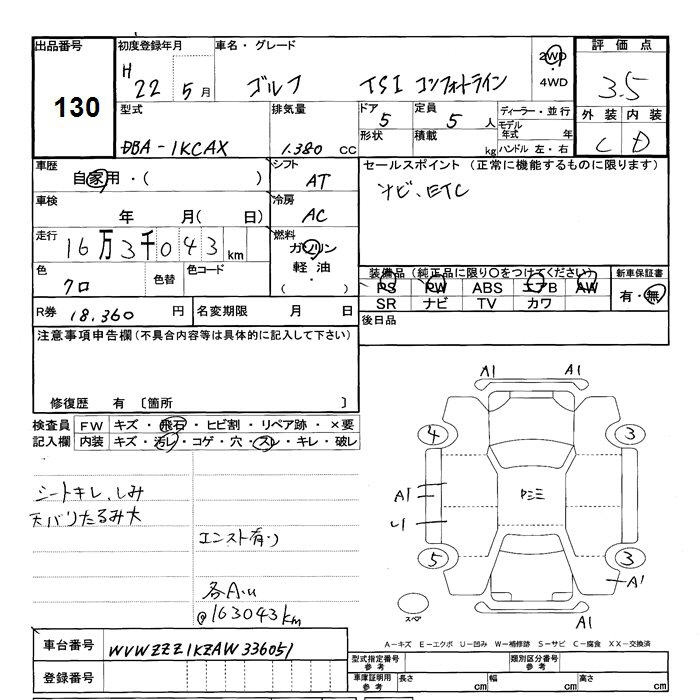 出品番号
130
初度登録年月
H 22 5月
車名・グレード
ゴルフ TSI コンフォートライン
2WD・4WD
評価点
3.5
外装 内装
C D
型式
DBA-1KCAX
排気量
1.380 cc
ドア
5
形状
定員
5人
積載
kg
ディーラー・並行
モデル年式 年
ハンドル 左・右
車歴
自家用・( )
シフト
AT
セールスポイント (正常に機能するものに限ります)
ナビ、ETC
車検
年 月( 日)
冷房
AC
走行
16万3千043km
燃料
ガソリン・軽油
( )
色
クロ
色替
色コード
装備品(純正品に限り○をつけてください)
PS PW ABS エアB AW
SR ナビ TV カワ
新車保証書
有・無
R券
18.360 円
名変期限 月 日
後日品
注意事項申告欄(不具合内容等は具体的に記入して下さい)
修復歴 有 〔箇所 〕
検査員記入欄
FW キズ・飛石・ヒビ割・リペア跡・×要
内装 キズ・汚レ・コゲ・穴・スレ・キレ・破レ
シートキレ、しみ
天バリたるみ大
エンスト有り
各A.u
@163043km
A1 A1
4 3
A1
5 3
A1
A1
スペア
A-キズ E-エクボ U-凹み W-補修跡 S-サビ C-腐食 XX-交換済
車台番号
WVWZZZ1KZAW336051
登録番号
型式指定番号
参考
類別区分番号
参考
車庫証明用
参考
長さ cm
幅 cm
高さ cm